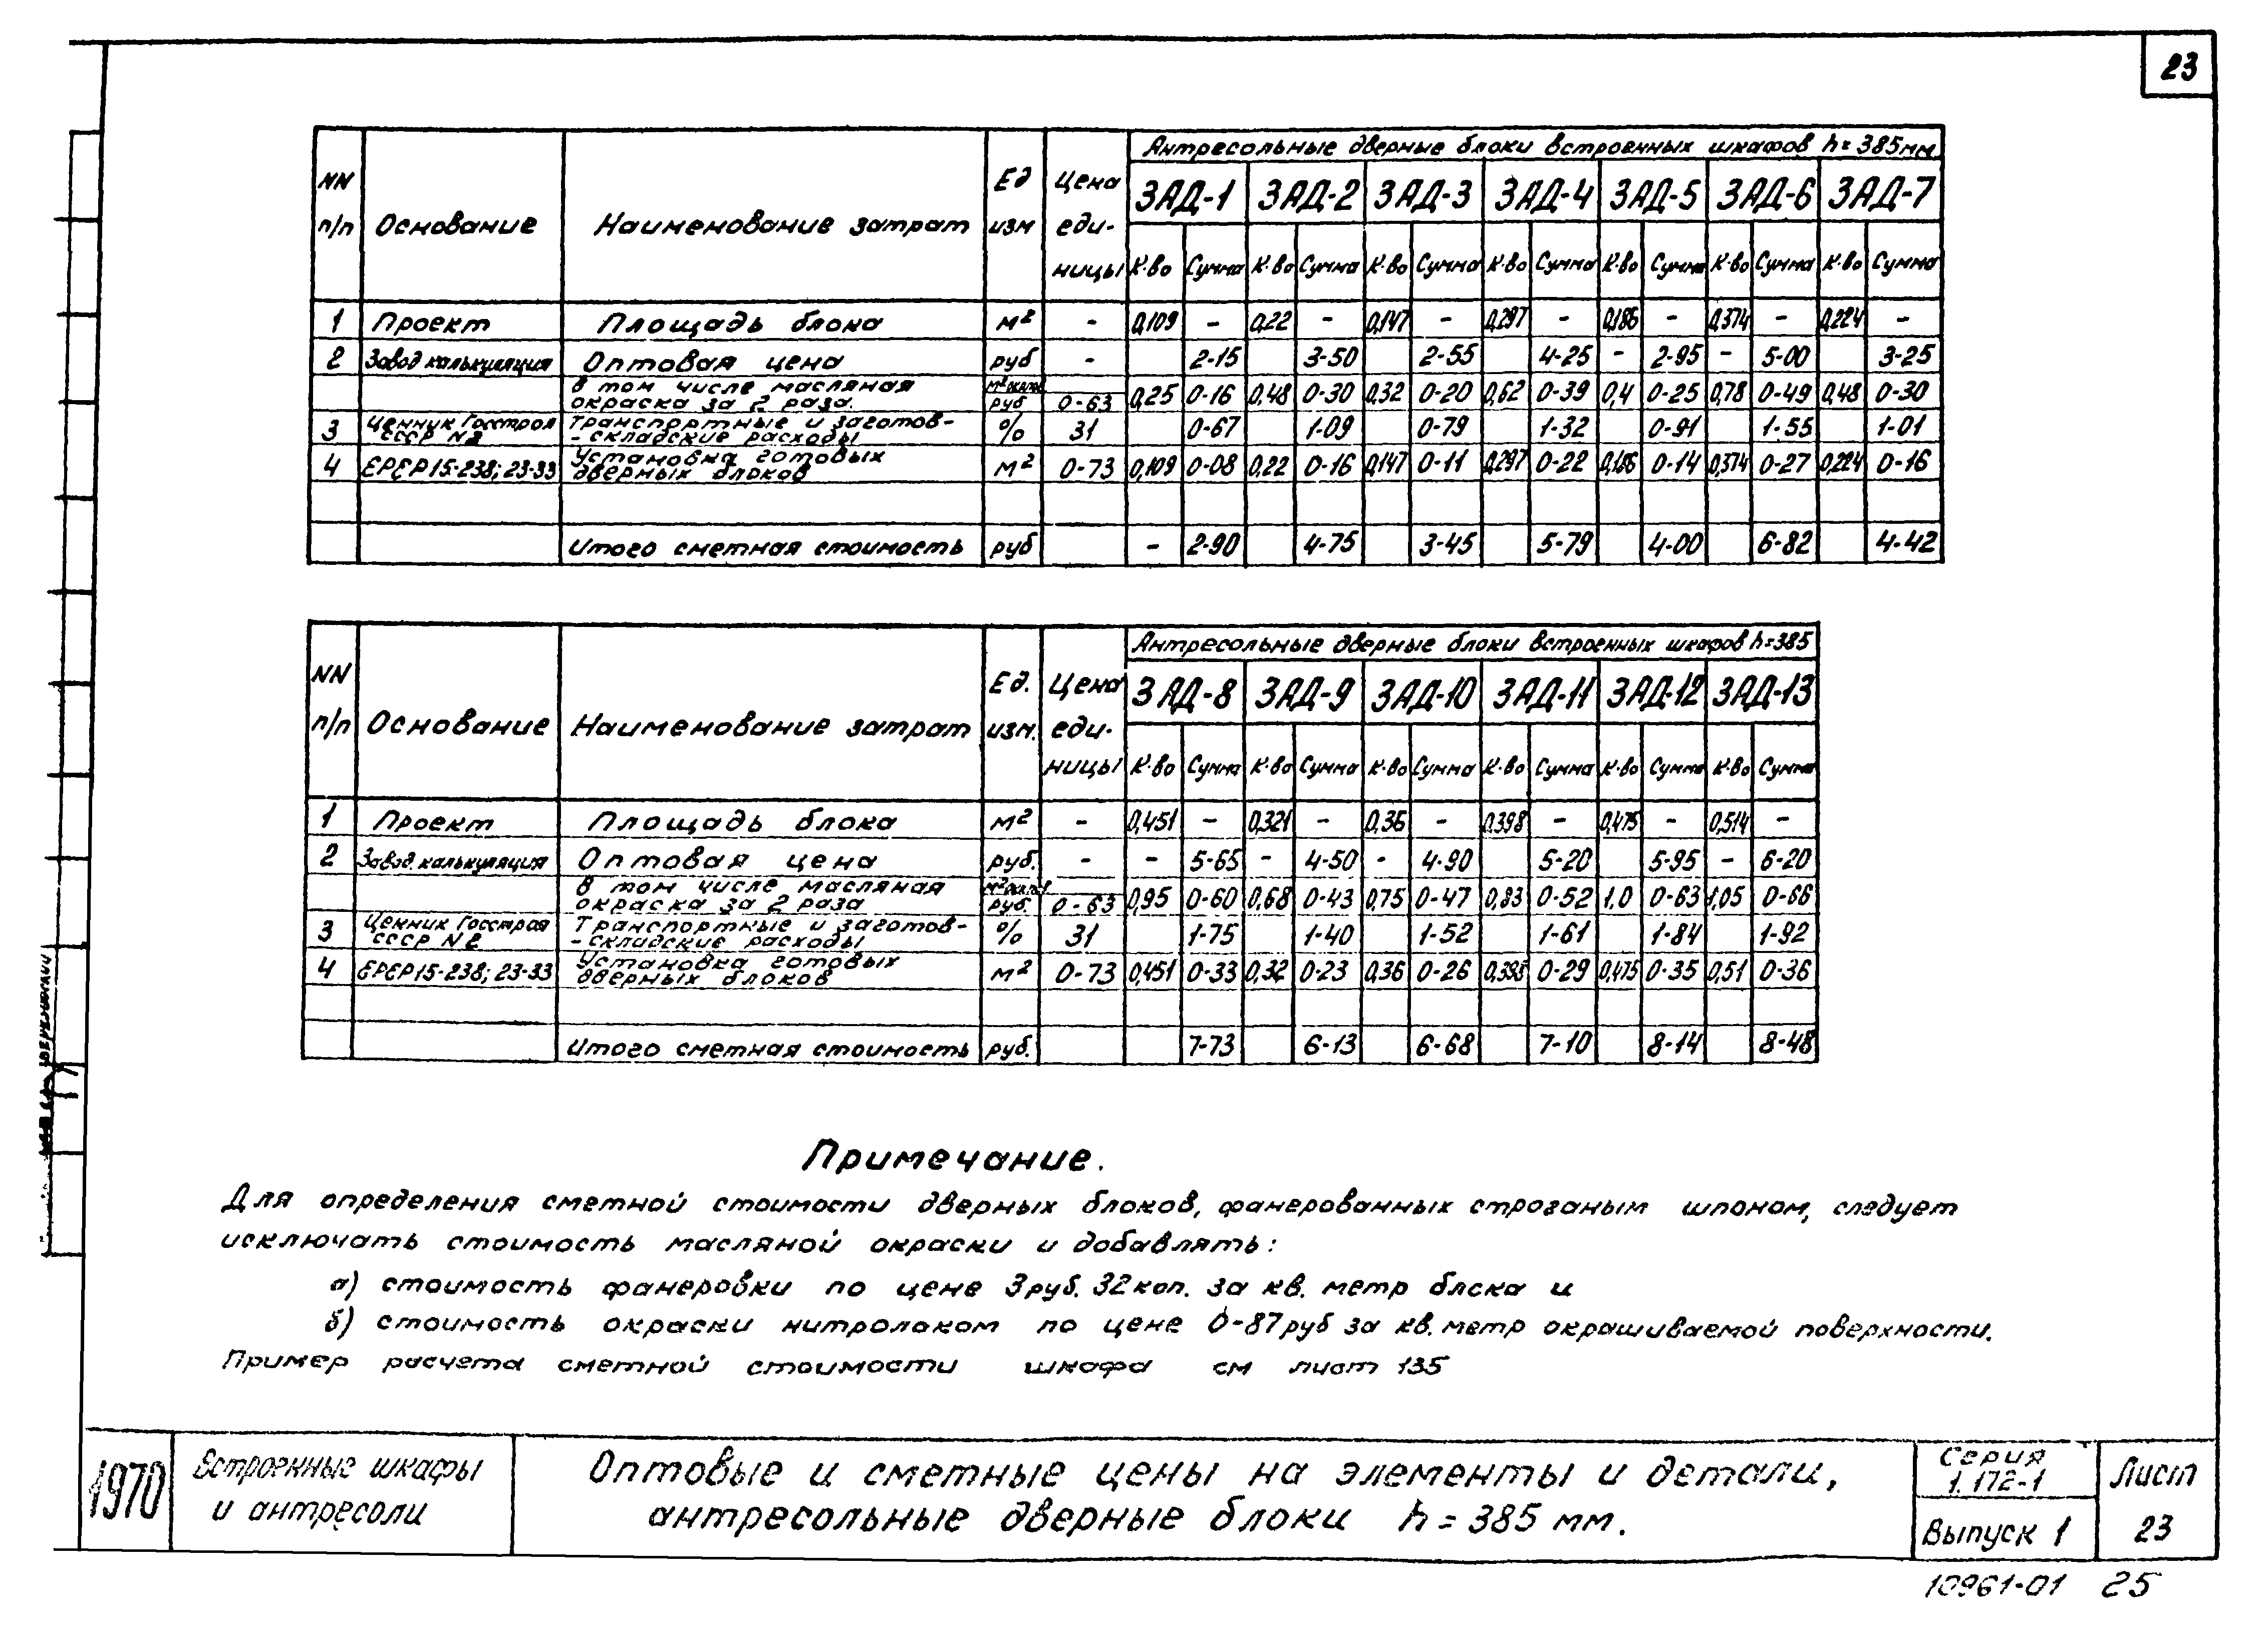 23
Антресольные дверные блоки встроенных шкафов h=385мм
NN п/п Основание Наименование затрат Ед изм Цена единицы ЗАД-1 ЗАД-2 ЗАД-3 ЗАД-4 ЗАД-5 ЗАД-6 ЗАД-7
К-во Сумма К-во Сумма К-во Сумма К-во Сумма К-во Сумма К-во Сумма К-во Сумма
1 Проект Площадь блока м² - 0,109 - 0,22 - 0,147 - 0,297 - 0,186 - 0,374 - 0,224 -
2 Завод калькуляция Оптовая цена руб - 2-15 3-50 2-55 4-25 - 2-95 - 5-00 3-25
в том числе масляная
окраска за 2 раза. руб 0-63 0,25 0-16 0,48 0-30 0,32 0-20 0,62 0-39 0,4 0-25 0,78 0-49 0,48 0-30
3 Ценник Госстроя СССР N2 Транспортные и заготов-
-складские расходы % 31 0-67 1-09 0-79 1-32 0-91 1-55 1-01
4 ЕРЕР15-238; 23-33 Установка готовых
дверных блоков м² 0-73 0,109 0-08 0,22 0-16 0,147 0-11 0,297 0-22 0,186 0-14 0,374 0-27 0,224 0-16
Итого сметная стоимость руб - 2-90 4-75 3-45 5-79 4-00 6-82 4-42
Антресольные дверные блоки встроенных шкафов h=385
NN п/п Основание Наименование затрат Ед. изм. Цена единицы ЗАД-8 ЗАД-9 ЗАД-10 ЗАД-11 ЗАД-12 ЗАД-13
К-во Сумма К-во Сумма К-во Сумма К-во Сумма К-во Сумма К-во Сумма
1 Проект Площадь блока м² - 0,451 - 0,321 - 0,36 - 0,398 - 0,475 - 0,514 -
2 Завод. калькуляция Оптовая цена руб. - - 5-65 - 4-50 - 4-90 5-20 5-95 - 6-20
в том числе масляная
окраска за 2 раза руб. 0-63 0,95 0-60 0,68 0-43 0,75 0-47 0,83 0-52 1,0 0-63 1,05 0-66
3 Ценник Госстроя СССР N2 Транспортные и заготов-
-складские расходы % 31 1-75 1-40 1-52 1-61 1-84 1-92
4 ЕРЕР15-238; 23-33 Установка готовых
дверных блоков м² 0-73 0,451 0-33 0,32 0-23 0,36 0-26 0,398 0-29 0,475 0-35 0,51 0-36
Итого сметная стоимость руб. 7-73 6-13 6-68 7-10 8-14 8-48
Примечание.
Для определения сметной стоимости дверных блоков, фанерованных строганым шпоном, следует
исключать стоимость масляной окраски и добавлять:
а) стоимость фанеровки по цене 3руб. 32коп. за кв. метр блока и
б) стоимость окраски нитролаком по цене 0-87руб за кв. метр окрашиваемой поверхности.
Пример расчета сметной стоимости шкафа см лист 135
1970 Встроенные шкафы
и антресоли
Оптовые и сметные цены на элементы и детали,
антресольные дверные блоки h=385 мм.
Серия
1.172-1
Выпуск 1
Лист
23
10961-01 25